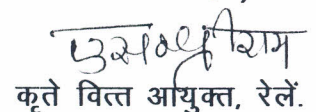 कृते वित्त आयुक्त, रेलें.